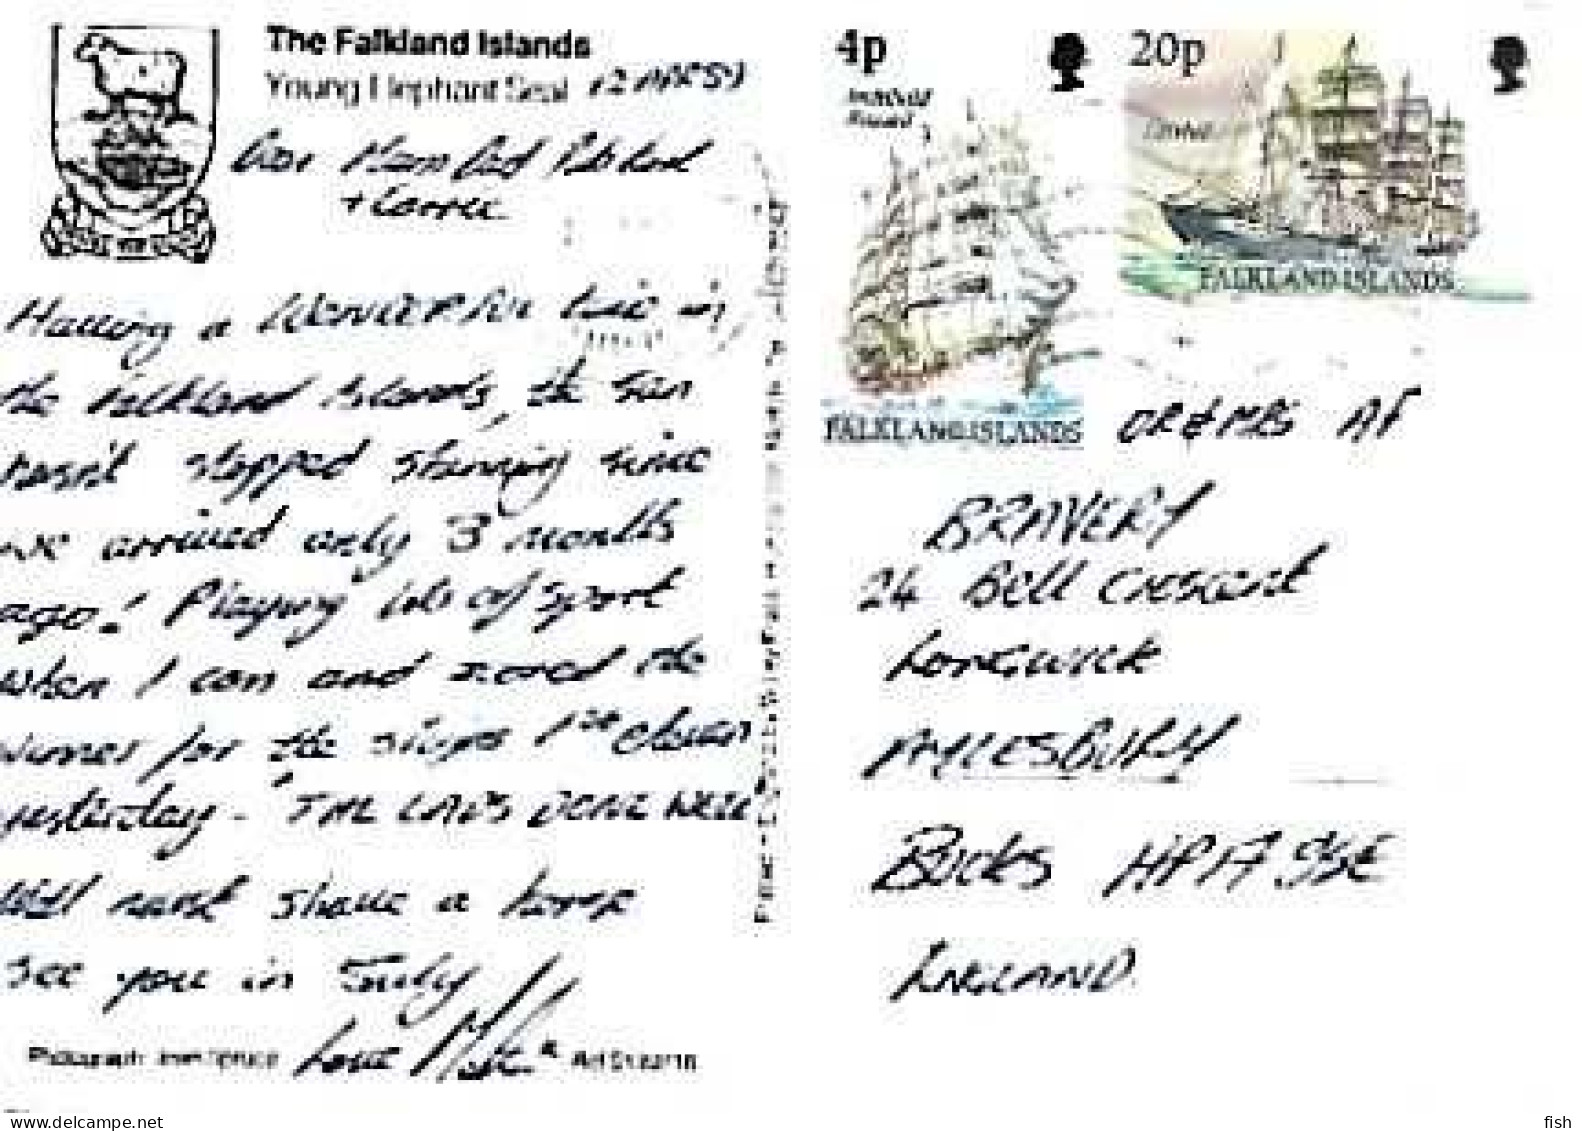 The Falkland Islands
Young Elephant Seal 12
Dear Mam Dad
+ Carrie
Having a WONDERFUL time in
the Falkland Islands, the sun
hasn't stopped shining since
we arrived only 3 months
ago! Playing lots of sport
when I can and scored the
winner for the ships 1st eleven
yesterday - 'THE LADS DONE WELL
Will next shave a home
See you in July
Love
4p
FALKLAND ISLANDS
20p
FALKLAND ISLANDS
DR & MRS AF
BRAVERY
24 Bell Crescent
Longwick
AYLESBURY
Bucks HP17 9SE
ENGLAND.
www.delcampe.net
fish